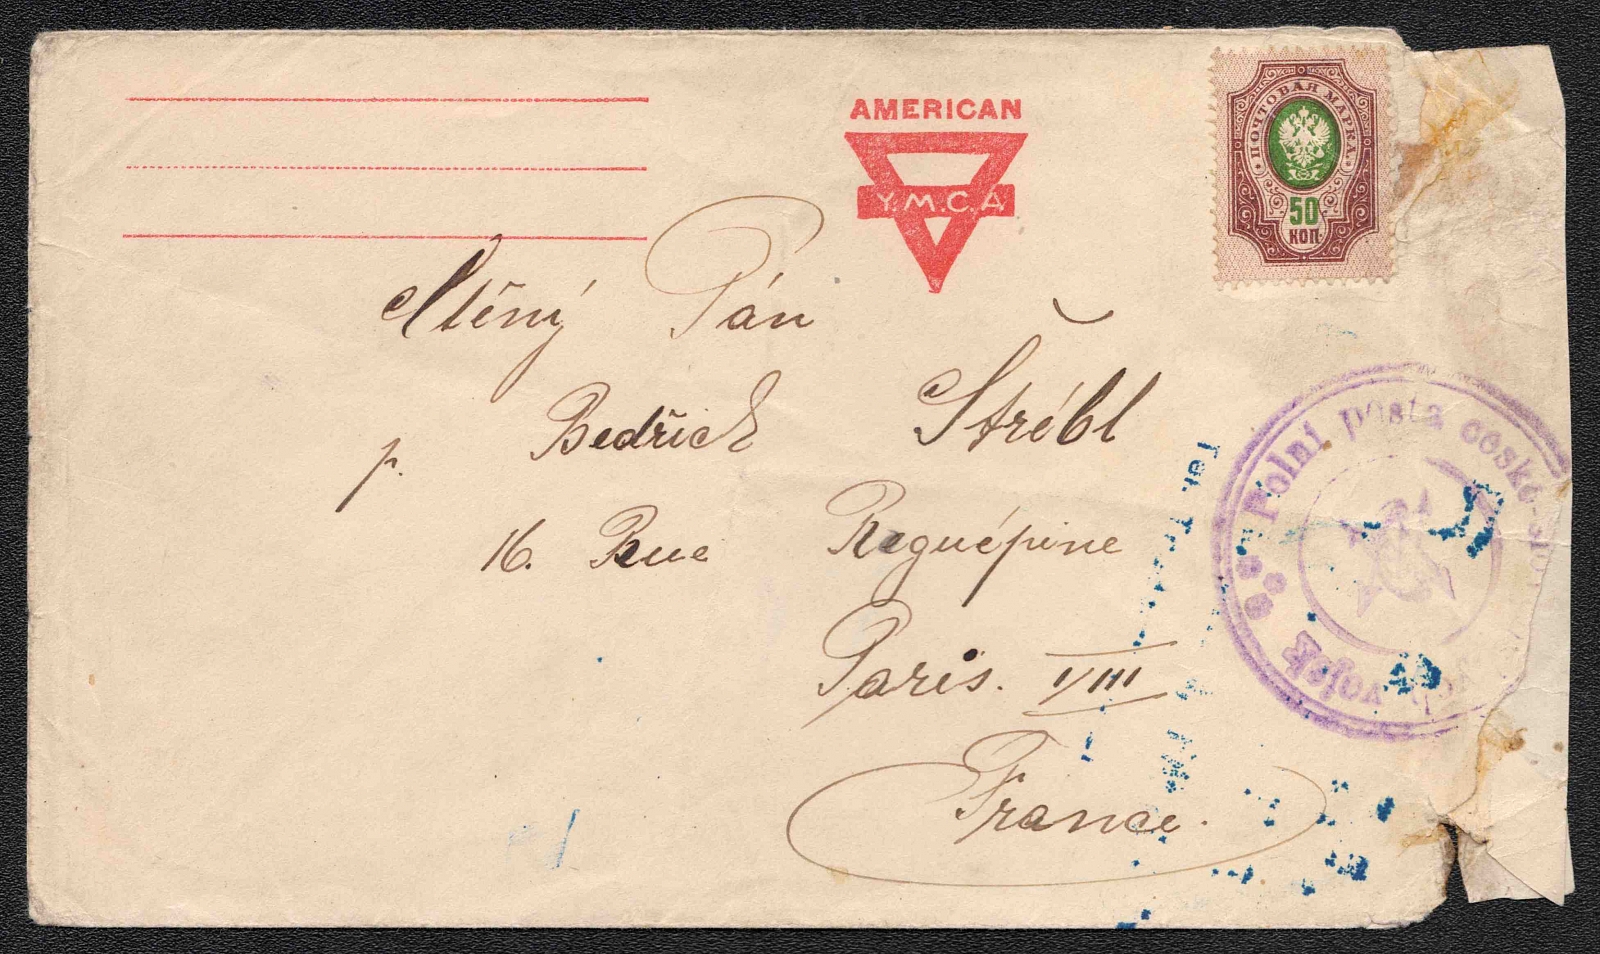 AMERICAN
Y.M.C.A.
ПОЧТОВАЯ МАРКА.
50
КОП.
Ctěný Pán
p. Bedřich Štrébl
16. Rue
Paris. VIII
France.
Polní pošta česko-
vojsk